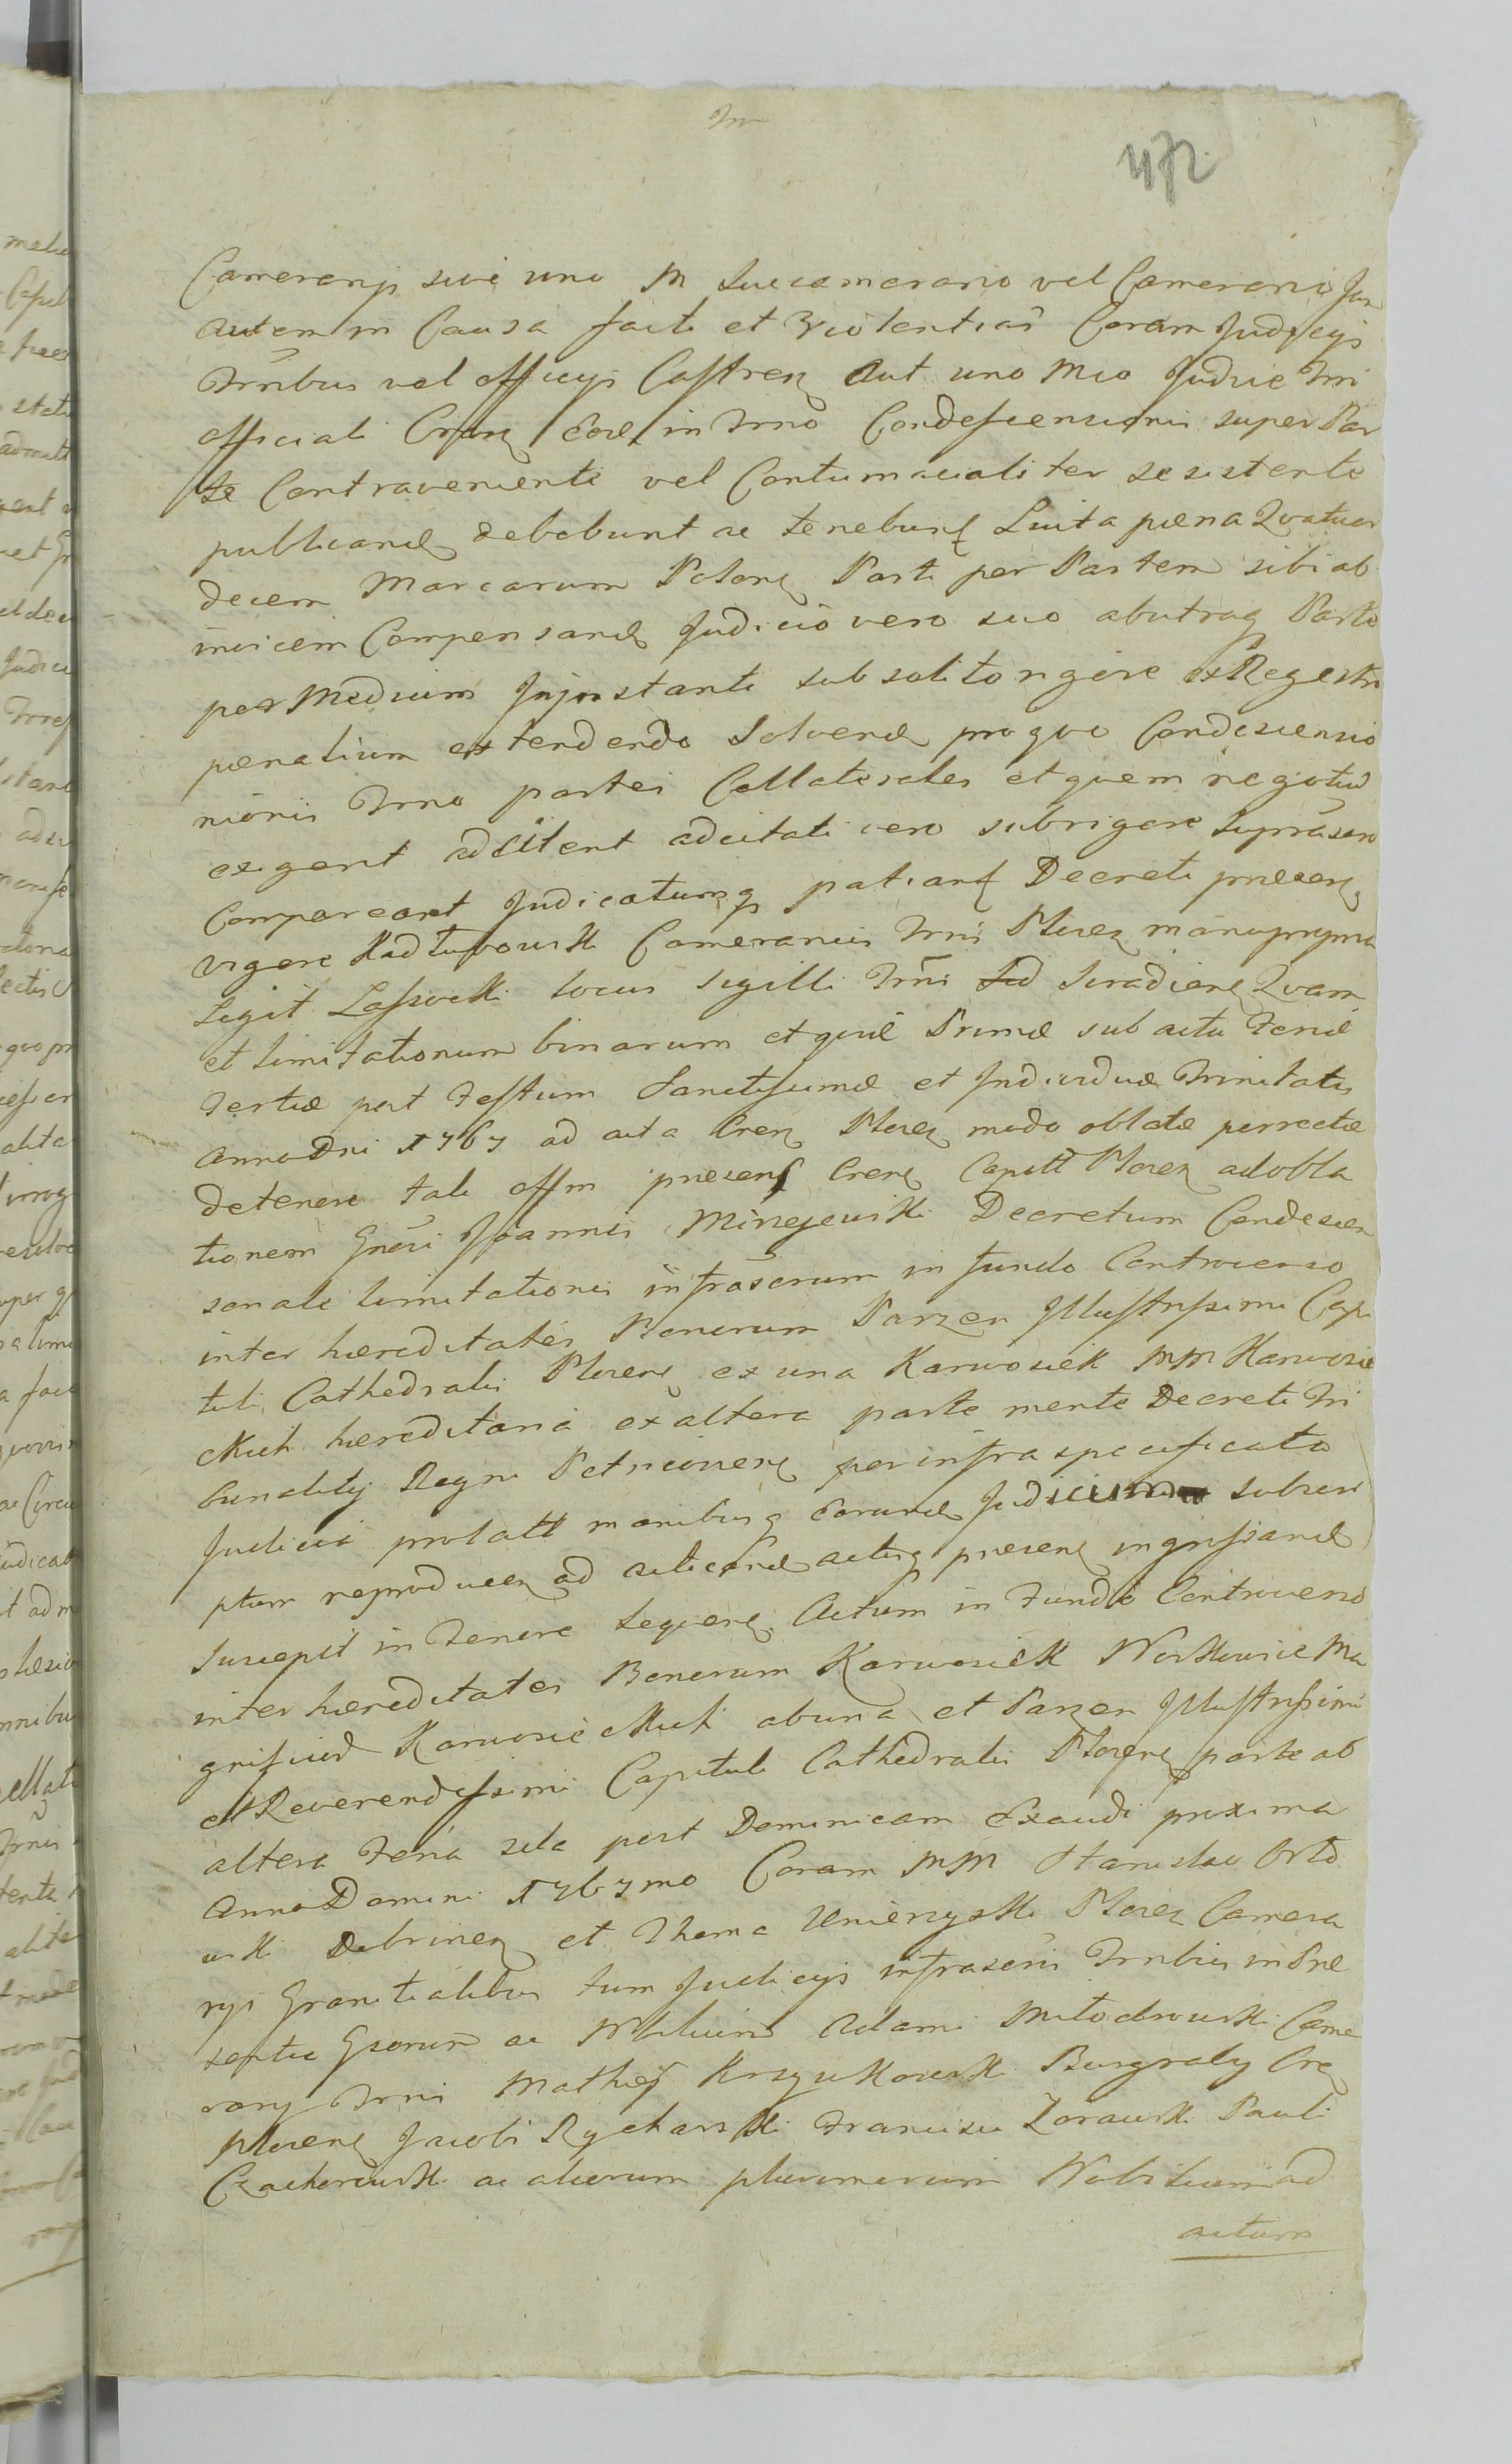 472
Camerarys sive uno M Succamerario vel Camerario Jur
autem in Causa facti et Violentiar Coram Judicys
Trnbus vel officys Castren aut uno Mco Judice Trri
officiali Crnsi in Trno Condescensionis super Par
te Contraveniente vel Contumacialiter se sistente
publicand debebunt ac tenebunt Luita pœna Quatuor
decem Marcarum Polon Parti per Partem sibi ab
invicem Compensand Judicio vero suo ab utraq Parte
per Medium Injnstanti sub solito rigore ex Regestro
pœnalium extendendo Solvend pro quo Condescensio
nionis Trno partes Collaterales et quem negotiu
exigent adcitent adcitati vero sub rigore supra scro
Compareant Judicatumq patiant Decreti præsen
vigore Camerarius Trrs Plocen manu propria
Legit Lassocki locus Sigilli Trri Siradien Quam
et limitationum binarum et quid Primæ sub actu Feriæ
Tertiæ post Festum Sanctissimæ et Individuæ Trinitatis
Anno Dni 1767 ad acta Cren Plocen modo oblatæ porrectæ
de tenore tali offm præsens Cren Capitt Plocen ad obla
tionem Gnosi Joannis Mineyewski Decretum Condescen
sonale limitationis infrascrum in fundo Controverso
inter hæreditates Bonorum Parzen Illustrissimi Capi
tuli Cathedralis Plocen ex una Karwosiek MM Karwosie
ckich hæreditaria ex altera parte mente Decreti Tri
bunality Regni Petricovien per infra specificata
Judicia prolatt manibusq eorund Judicium subscri
ptum reproducen ad acticand actisq præsen ingrossand
Suscepit in Tenore Sequen Actum in Fundo Controverso
inter hæreditates Bonorum Karwosiek Ma
gnificud Karwosieckich ab una et Parzen Illustrissimi
et Reverendissimi Capituli Cathedralis Plocen parte ab
altera Feria 2da post Dominicam Exaudi proxima
Anno Domini 1767mo Coram MM Stanislao Orło
wski Dobrinen et Thoma Umienyski Plocen Camera
rys Granitialibus tum Judicys infrascris Trnbus in Præ
sentia Gsorum ac Nobilium Adami Młodzowski Came
rary Trri Mathiej Krzyckowski Burgraby Cre
Plocen Jacobi Rycharski Francisci Zorawski Pauli
Czachorowski ac aliorum plurimorum Nobilium ad
actum